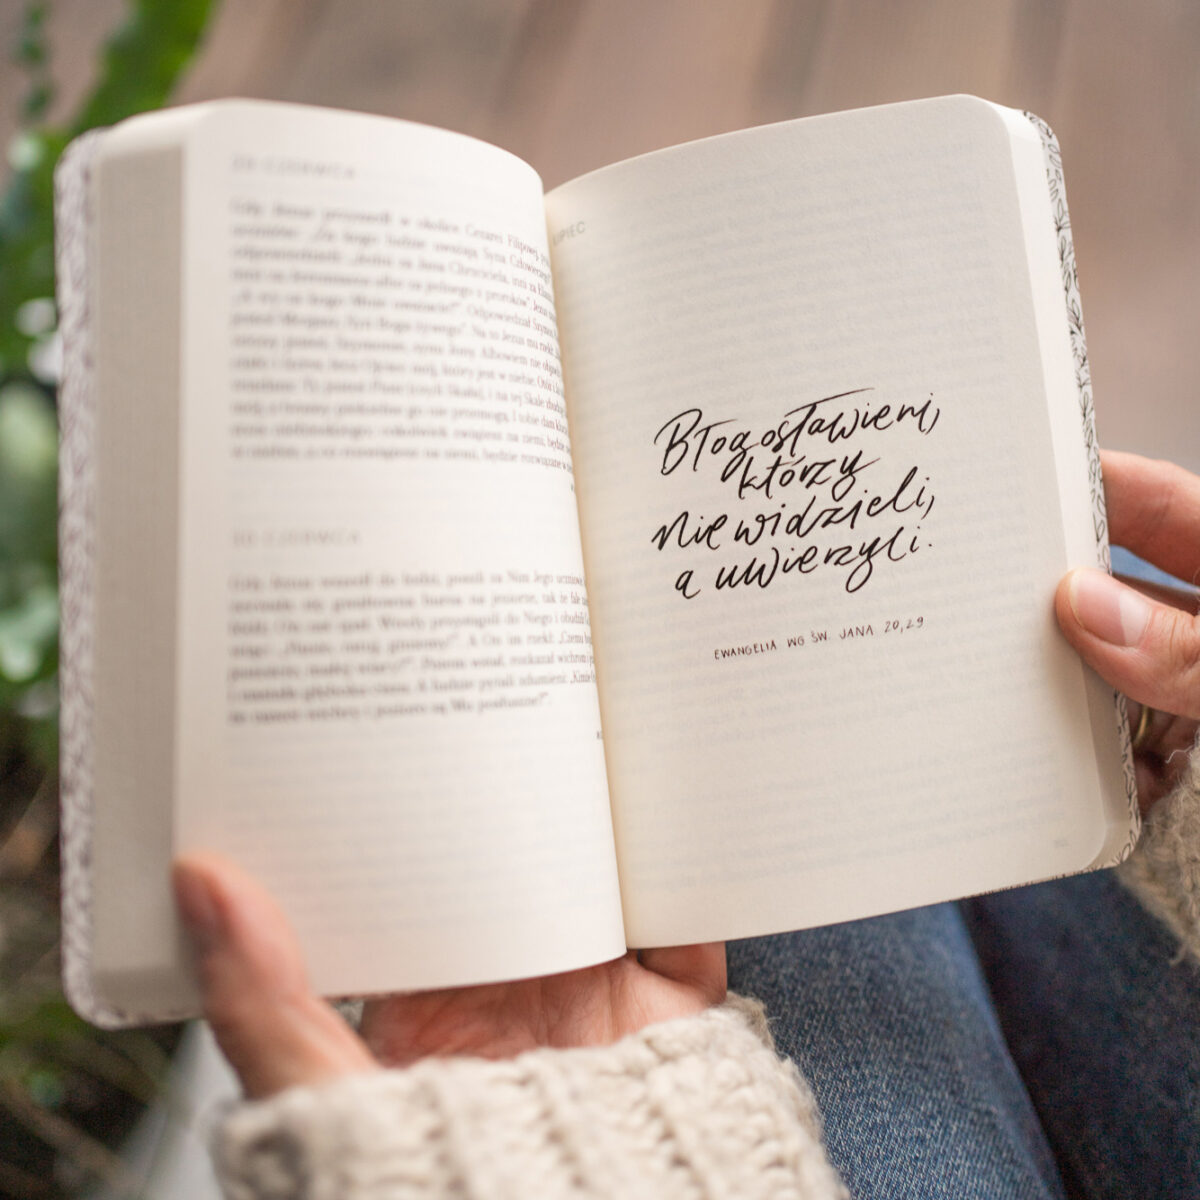 29 CZERWCA
Gdy Jezus przyszedł w okolice Cezarei Filipowej,
uczniów: „Za kogo ludzie uważają Syna Człowieczego?"
odpowiedzieli: „Jedni za Jana Chrzciciela, inni za
jeszcze inni za Jeremiasza albo za jednego z proroków". Jezus
„A wy za kogo Mnie uważacie?". Odpowiedział Szymon
Mesjasz, Syn Boga żywego". Na to Jezus mu rzekł:
jesteś, Szymonie, synu Jony. Albowiem nie
ciało i krew, lecz Ojciec mój, który jest w niebie. Otóż i Ja
Ty jesteś Piotr (czyli Skała), i na tej Skale
mój, a bramy piekielne go nie przemogą. I tobie dam
królestwa niebieskiego; cokolwiek zwiążesz na ziemi, będzie
w niebie, a co rozwiążesz na ziemi, będzie rozwiązane w
30 CZERWCA
Gdy Jezus wszedł do łodzi, poszli za Nim Jego uczniowie.
gwałtowna burza na jeziorze, tak że fale
łódź; On zaś spał. Wtedy przystąpili do Niego i obudzili
„Panie, ratuj, giniemy!". A On im rzekł: „Czemu
jesteście, małej wiary?". Potem wstał, rozkazał wichrom i
i nastała głęboka cisza. A ludzie pytali zdumieni: „Kimże
że nawet wichry i jezioro są Mu posłuszne?".
LIPIEC
Błogosławieni,
którzy
nie widzieli,
a uwierzyli.
EWANGELIA WG ŚW. JANA 20,29